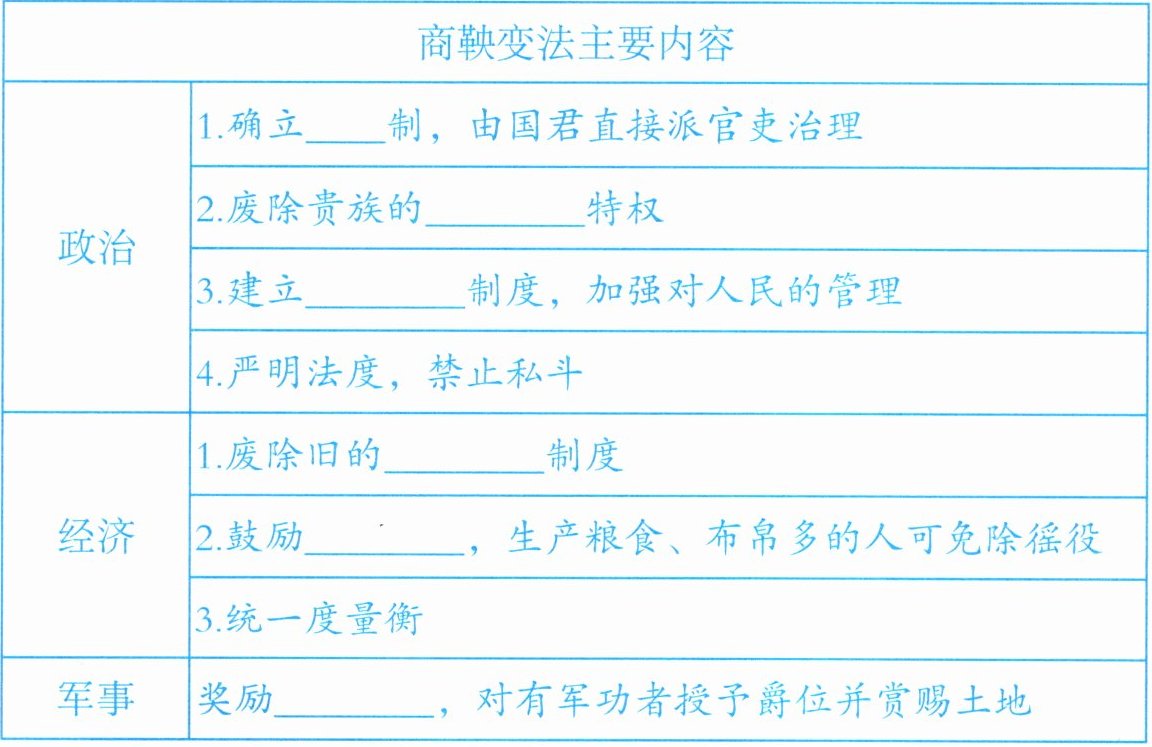 商鞅变法主要内容
政治
1.确立____制，由国君直接派官吏治理
2.废除贵族的________特权
3.建立________制度，加强对人民的管理
4.严明法度，禁止私斗
经济
1.废除旧的________制度
2.鼓励________，生产粮食、布帛多的人可免除徭役
3.统一度量衡
军事
奖励________，对有军功者授予爵位并赏赐土地